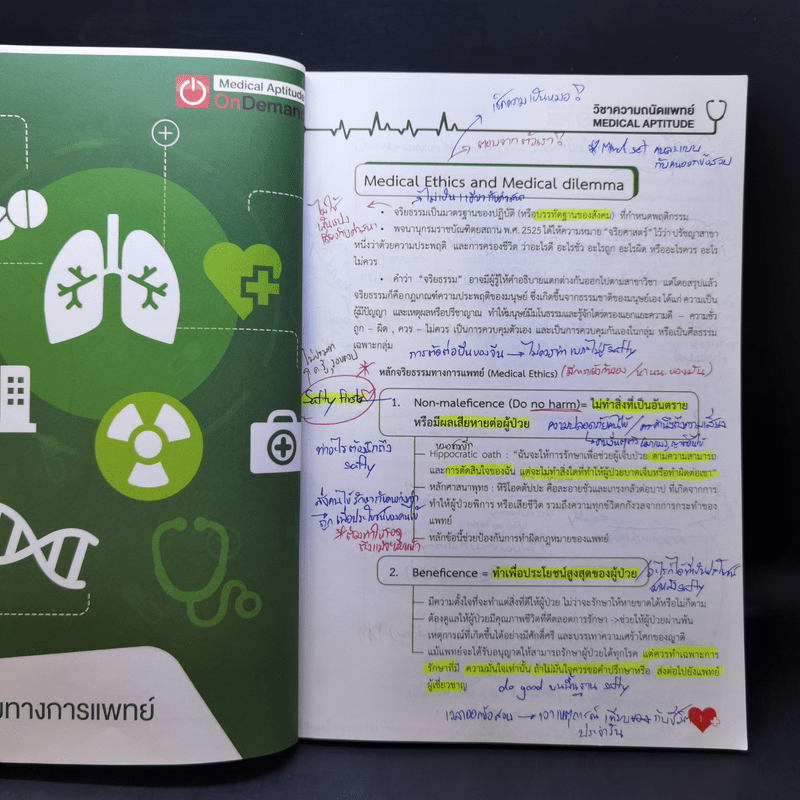 Medical Aptitude
OnDeman
ทางการแพทย์
วิชาความถนัดแพทย์
MEDICAL APTITUDE
เช็คความเป็นหมอ?
ตอบจากตัวเรา?
Medical Ethics and Medical dilemma
• จริยธรรมเป็นมาตรฐานของปฏิบัติ (หรือบรรทัดฐานของสังคม) ที่กำหนดพฤติกรรม
• พจนานุกรมราชบัณฑิตยสถาน พ.ศ. 2525 ได้ให้ความหมาย “จริยศาสตร์” ไว้ว่า ปรัชญาสาขา
หนึ่งว่าด้วยความประพฤติ และการครองชีวิต ว่าอะไรดี อะไรชั่ว อะไรถูก อะไรผิด หรืออะไรควร อะไร
ไม่ควร
• คำว่า “จริยธรรม” อาจมีผู้รู้ให้คำอธิบายแตกต่างกันออกไปตามสาขาวิชา แต่โดยสรุปแล้ว
จริยธรรมก็คือกฎเกณฑ์ความประพฤติของมนุษย์ ซึ่งเกิดขึ้นจากธรรมชาติของมนุษย์เอง ได้แก่ ความเป็น
ผู้มีปัญญา และเหตุผลหรือปรีชาญาณ ทำให้มนุษย์มีมโนธรรมและรู้จักไตร่ตรองแยกแยะความดี – ความชั่ว
ถูก – ผิด , ควร – ไม่ควร เป็นการควบคุมตัวเอง และเป็นการควบคุมกันเองในกลุ่ม หรือเป็นศีลธรรม
เฉพาะกลุ่ม
หลักจริยธรรมทางการแพทย์ (Medical Ethics)
Safty first
1. Non-maleficence (Do no harm)= ไม่ทำสิ่งที่เป็นอันตราย
หรือมีผลเสียหายต่อผู้ป่วย
ความปลอดภัยคนไข้
Hippocratic oath : “ฉันจะให้การรักษาเพื่อช่วยผู้เจ็บป่วย ตามความสามารถ
และการตัดสินใจของฉัน แต่จะไม่ทำสิ่งใดที่ทำให้ผู้ป่วยบาดเจ็บหรือทำผิดต่อเขา”
หลักศาสนาพุทธ : หิริโอตตัปปะ คือละอายชั่วและเกรงกลัวต่อบาป ที่เกิดจากการ
ทำให้ผู้ป่วยพิการ หรือเสียชีวิต รวมถึงความทุกข์ชีวิตกังวลจากการกระทำของ
แพทย์
หลักข้อนี้ช่วยป้องกันการทำผิดกฎหมายของแพทย์
ทำอะไรต้องนึกถึง
safty
2. Beneficence = ทำเพื่อประโยชน์สูงสุดของผู้ป่วย
มีความตั้งใจที่จะทำแต่สิ่งที่ดีให้ผู้ป่วย ไม่ว่าจะรักษาให้หายขาดได้หรือไม่ก็ตาม
ต้องดูแลให้ผู้ป่วยมีคุณภาพชีวิตที่ดีตลอดการรักษา ->ช่วยให้ผู้ป่วยผ่านพ้น
เหตุการณ์ที่เกิดขึ้นได้อย่างมีศักดิ์ศรี และบรรเทาความเศร้าโศกของญาติ
แม้แพทย์จะได้รับอนุญาตให้สามารถรักษาผู้ป่วยได้ทุกโรค แต่ควรทำเฉพาะการ
รักษาที่มี ความมั่นใจเท่านั้น ถ้าไม่มั่นใจควรขอคำปรึกษาหรือ ส่งต่อไปยังแพทย์
ผู้เชี่ยวชาญ
do good บนพื้นฐาน safty
เวลาออกข้อสอบ → เอาเหตุการณ์
ประจำวัน
1